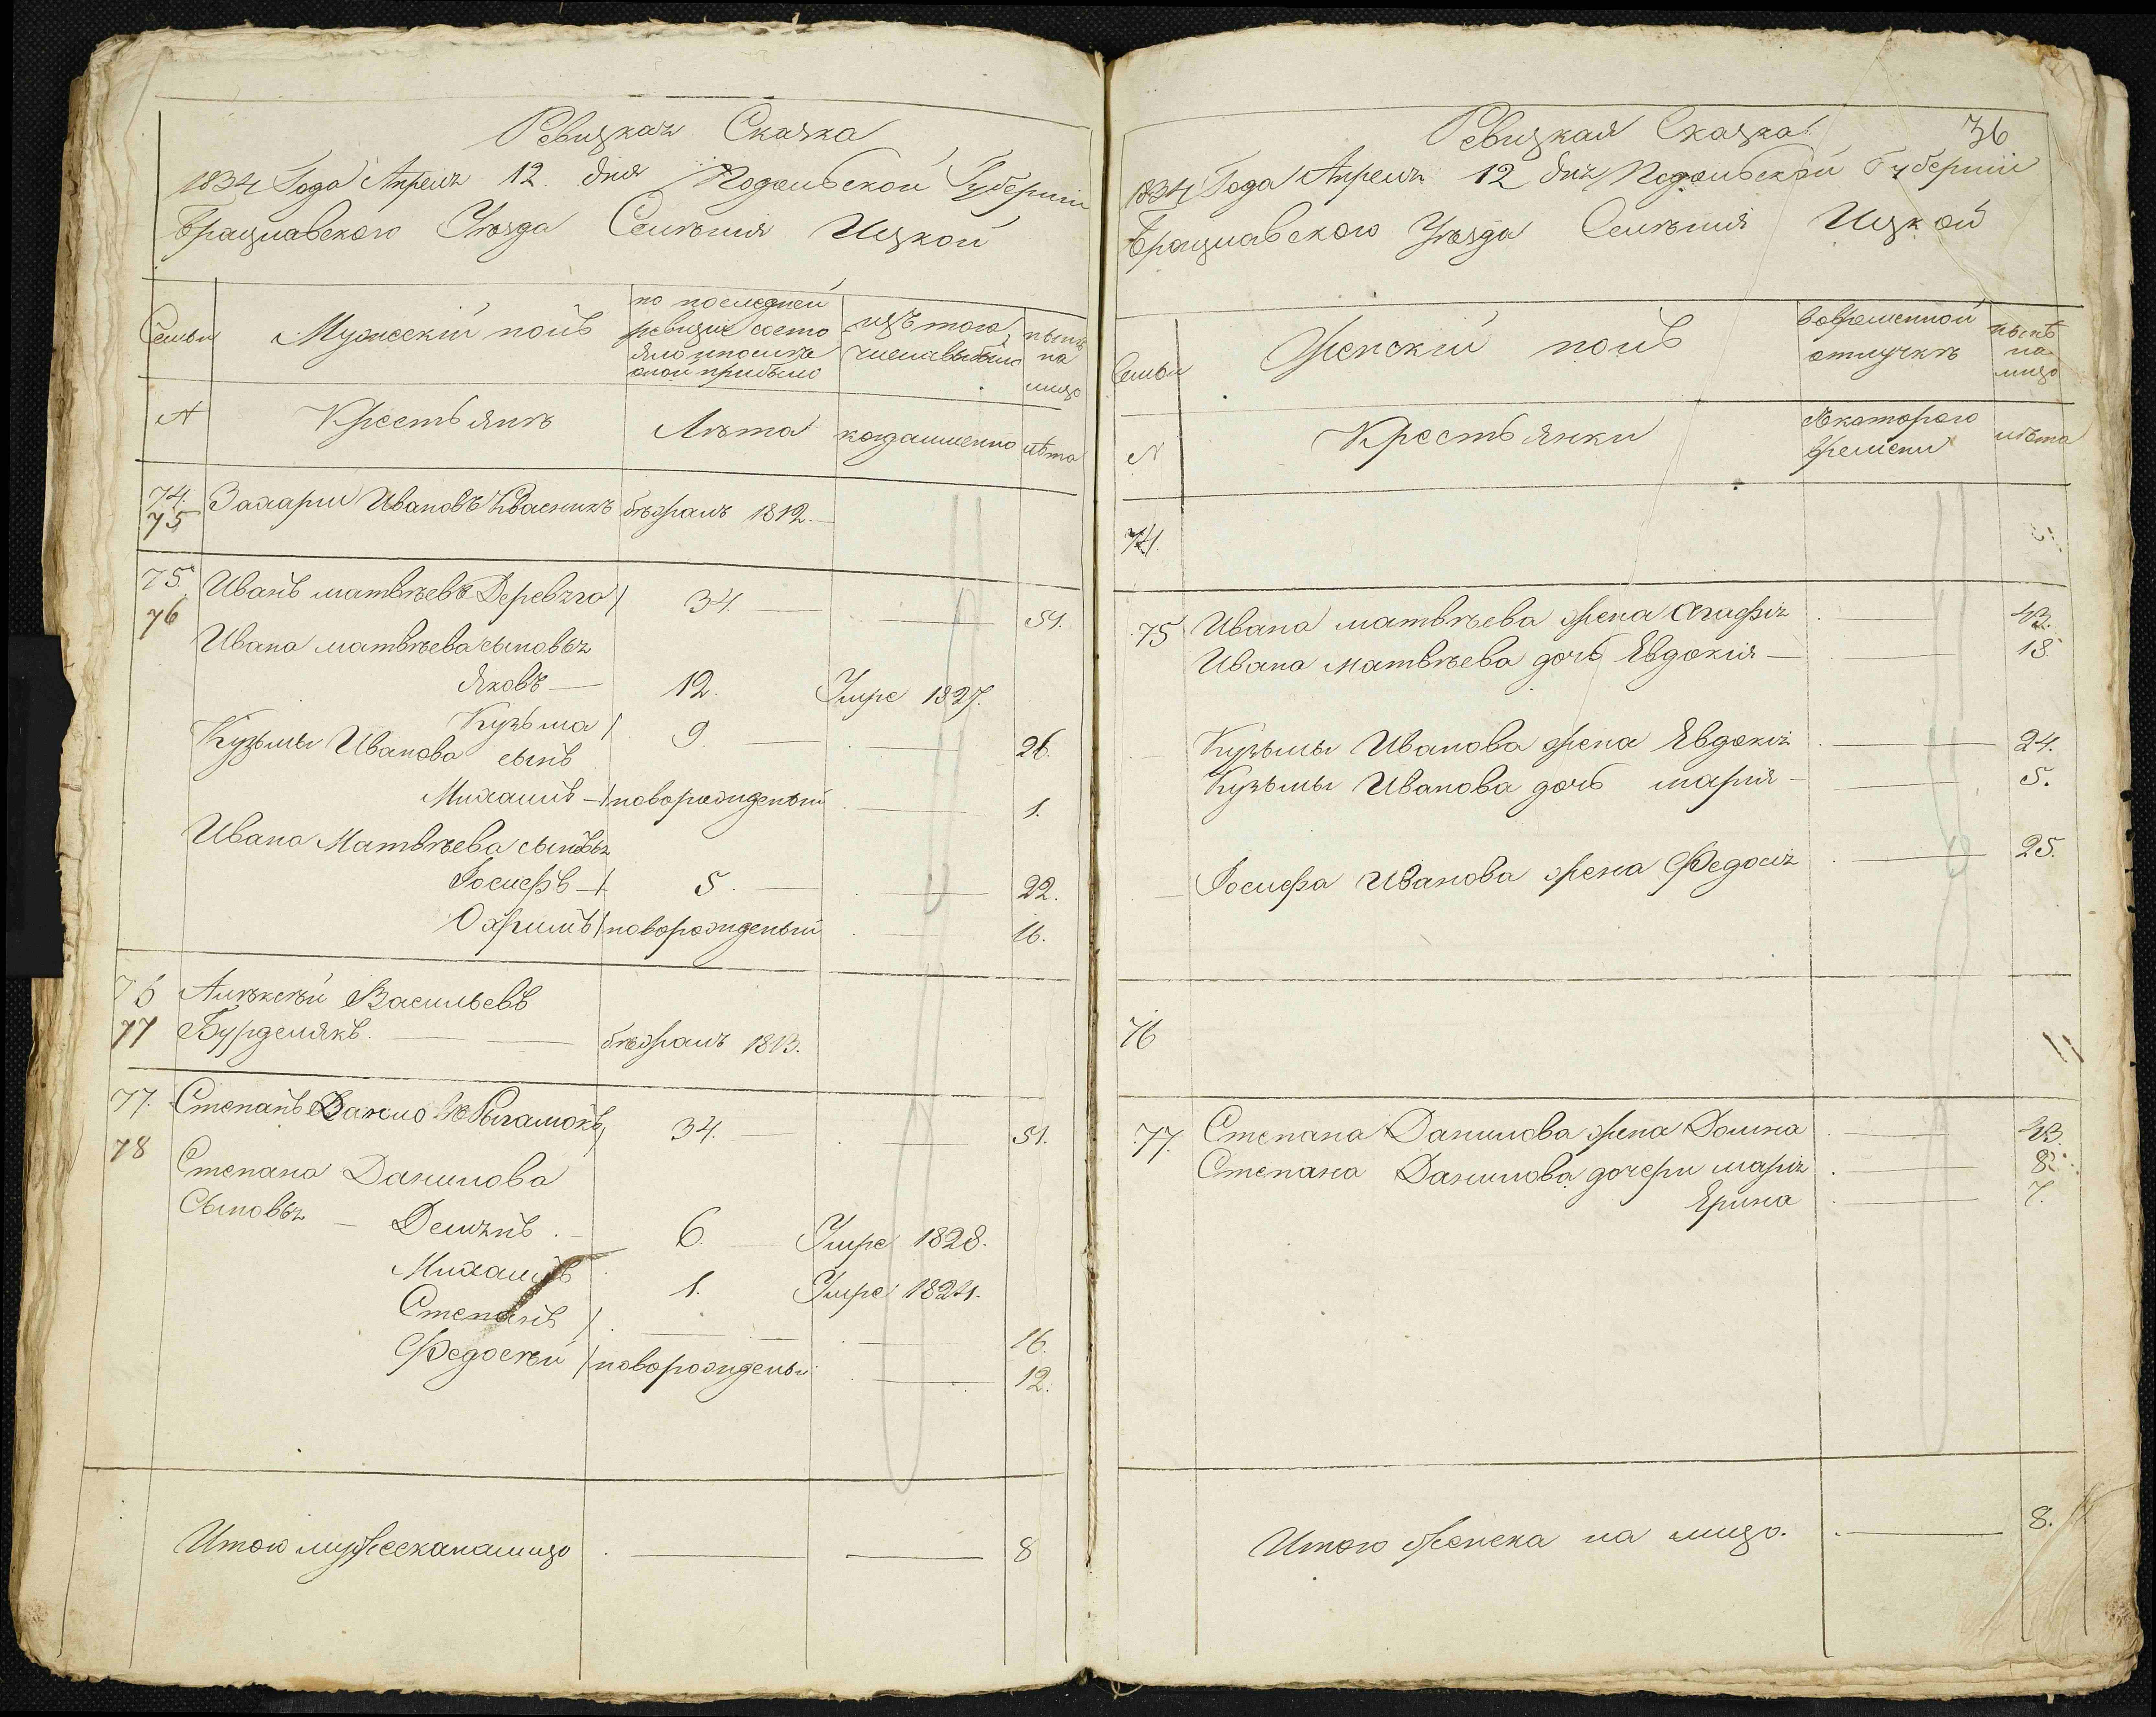 Ревизкая Сказка
1834 Года Апреля 12 дня Подольской Губернии
Брацлавского Уезда Селения Ицкой
Семьи
Мужескій полъ
по последней
ревизіи состо
яло и после
оной прибыло
изъ того
числа выбыло
нынѣ
на
лицо
N
Крестьянѣ
Лѣта
когда именно
лѣта
74.
75
Захарыи Ивановъ Квасникъ бѣжалъ 1812.
75.
76
Иванъ матвѣевъ Деревяго 34. 51.
Ивана матвѣева сыновья
Яковъ 12. Умре 1827.
Кузьма 9. 26.
Кузьмы Иванова сынъ
Михаилъ новорожденый 1.
Ивана Матвѣева сыновья
Іосифъ 5. 22.
Охримъ новорожденый 16.
76
77
Алѣксѣй Васильевъ
Бурделякъ. бѣжалъ 1813.
77.
78
Степанъ Данило 34. 51.
Степана Данилова
Сыновья Демянъ 6. Умре 1828.
Михаилъ 1. Умре 1824.
Степанъ 16.
Федосѣй новорожденый 12.
Итого мужеска налицо 8
Ревизкая Сказка
36
1834 Года Апреля 12 дня Подольской Губерніи
Брацлавского Уѣзда Селѣния Ицкой
Семьи
Женскій полъ
Вовременной
отлучкѣ
нынѣ
на
лицо
N
Крестьянки
съкоторого
времени
лѣта
74.
75 Ивана матвѣева жена Агафія 43.
Ивана матвѣева дочь Евдокия 18.
Кузьмы Иванова жена Евдокія 24.
Кузьмы Иванова дочь мария 5.
Іосифа Иванова жена Федосия 25.
76
77. Степана Данилова жена Домна 43.
Степана Данилова дочери марія 8.
Ярина 7.
Итого женска на лицо. 8.